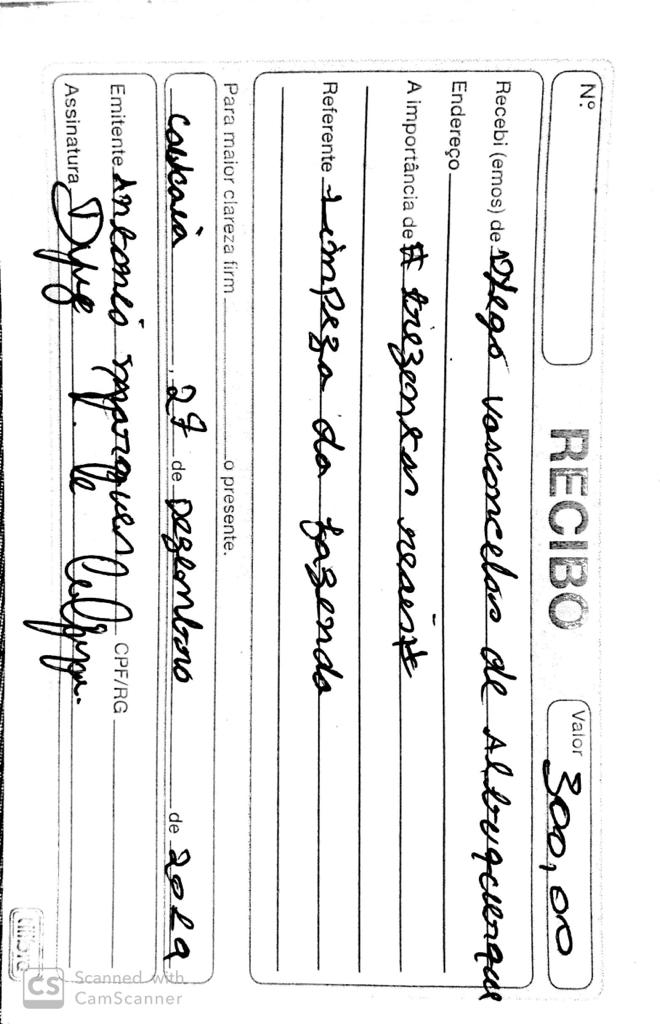 Nº
RECIBO
Valor 300,00
Recebi (emos) de Diego Vasconcelos de Albuquerque
Endereço
A importância de # trezentos reais #
Referente Limpeza da fazenda
Para maior clareza firm o presente.
Caucaia, 27 de Dezembro de 2029
Emitente Antonio Marques CPF/RG
Assinatura
tilibra
CS Scanned with
CamScanner